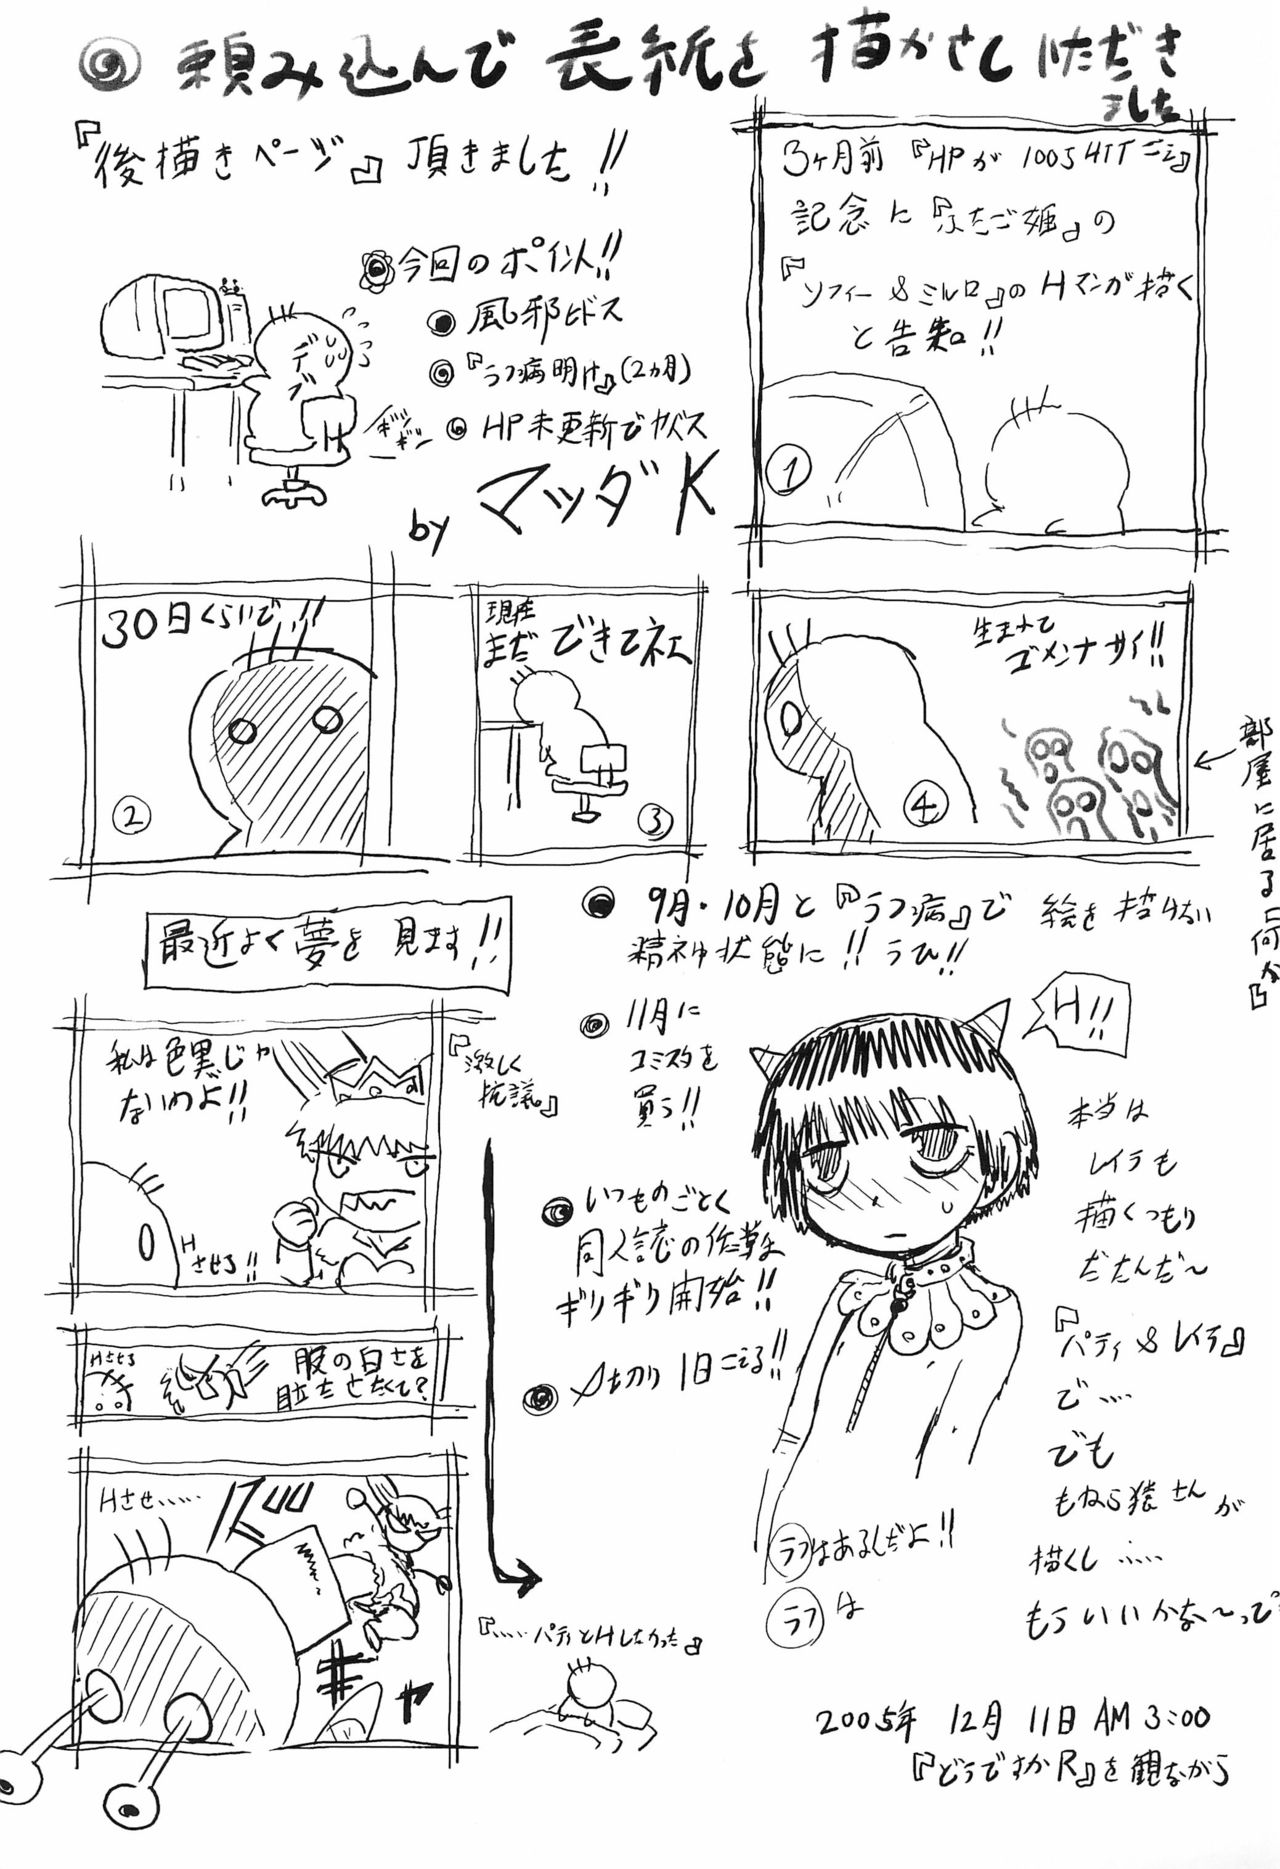 頼み込んで 表紙を 描かさしいただき
ました
『後描きページ』頂きました!!
今回のポイント!!
風邪ヒドス
『ラフ病明け』(2カ月)
HP未更新でヤバス
デブ
H
ギシギシ
by マッダK
3ヶ月前『HPが 1005HITごえ』
記念に『ふたご姫』の
『ソフィー&ミルロ』のHマンガ描く
と告知。!!
①
30日くらいで!!
②
現在
まだ できてネェ
③
生まれて
ゴメンナサイ!!
④
部屋に居る『何か』
9月・10月と『ラフ病』で 絵を描けない
精神状態に!! うひ!!
最近よく夢を 見ます!!
11月に
コミスタを
買う!!
いつものごとく
同人誌の作業は
ギリギリ開始!!
〆切り 1日ごえる!!
私は色黒じゃ
ないわよ!!
『激しく
抗議。』
H
させろ!!
Hさせろ
服の白さを
目立たせたくて?
Hさせ……
ギャ
『……パティとHしたかった』
H!!
本当は
レイラも
描くつもり
だたんだ〜
『パティ&レイラ』
で……
でも
もねら猿さんが
描くし……
もういいかな〜って
ラフはあるんだよ!!
ラフは
2005年 12月 11日 AM 3:00
『どうですかR』を観ながら